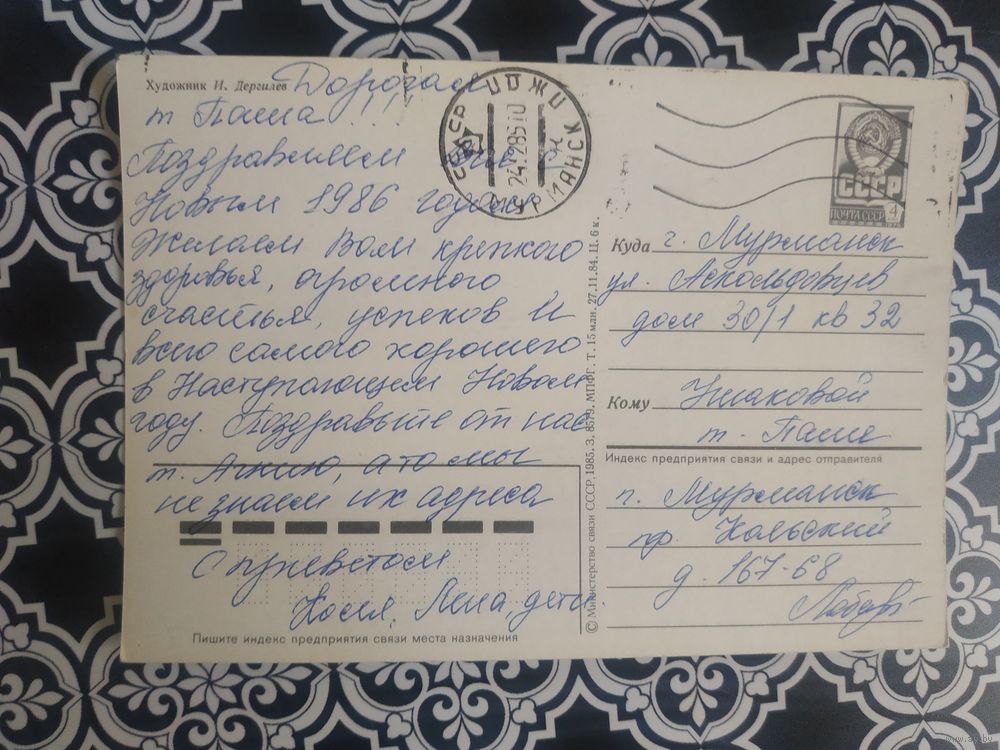 Художник И. Дергилев
Дорогая
т Паша!!!
Поздравляем Вас с
Новым 1986 годом
Желаем Вам крепкого
здоровья, огромного
счастья, успехов и
всего самого хорошего
в Наступающем Новом
году. Поздравьте от нас
т. Аннию, а то мы
не знаем их адреса
С приветом
Коля, Лена, дети.
Пишите индекс предприятия связи места назначения
© Министерство связи СССР. 1985. З. МПФГ. Т. 15 млн. 27.11.84. Ц. 6 к.
СССР ПОЧТА СССР 4
МУРМАНСК
Куда г. Мурманск
ул. Аскольдовцев
дом 30/1 кв 32
Кому Ушаковой
т. Паше
Индекс предприятия связи и адрес отправителя
г. Мурманск
пр. Кольский
д. 167-68